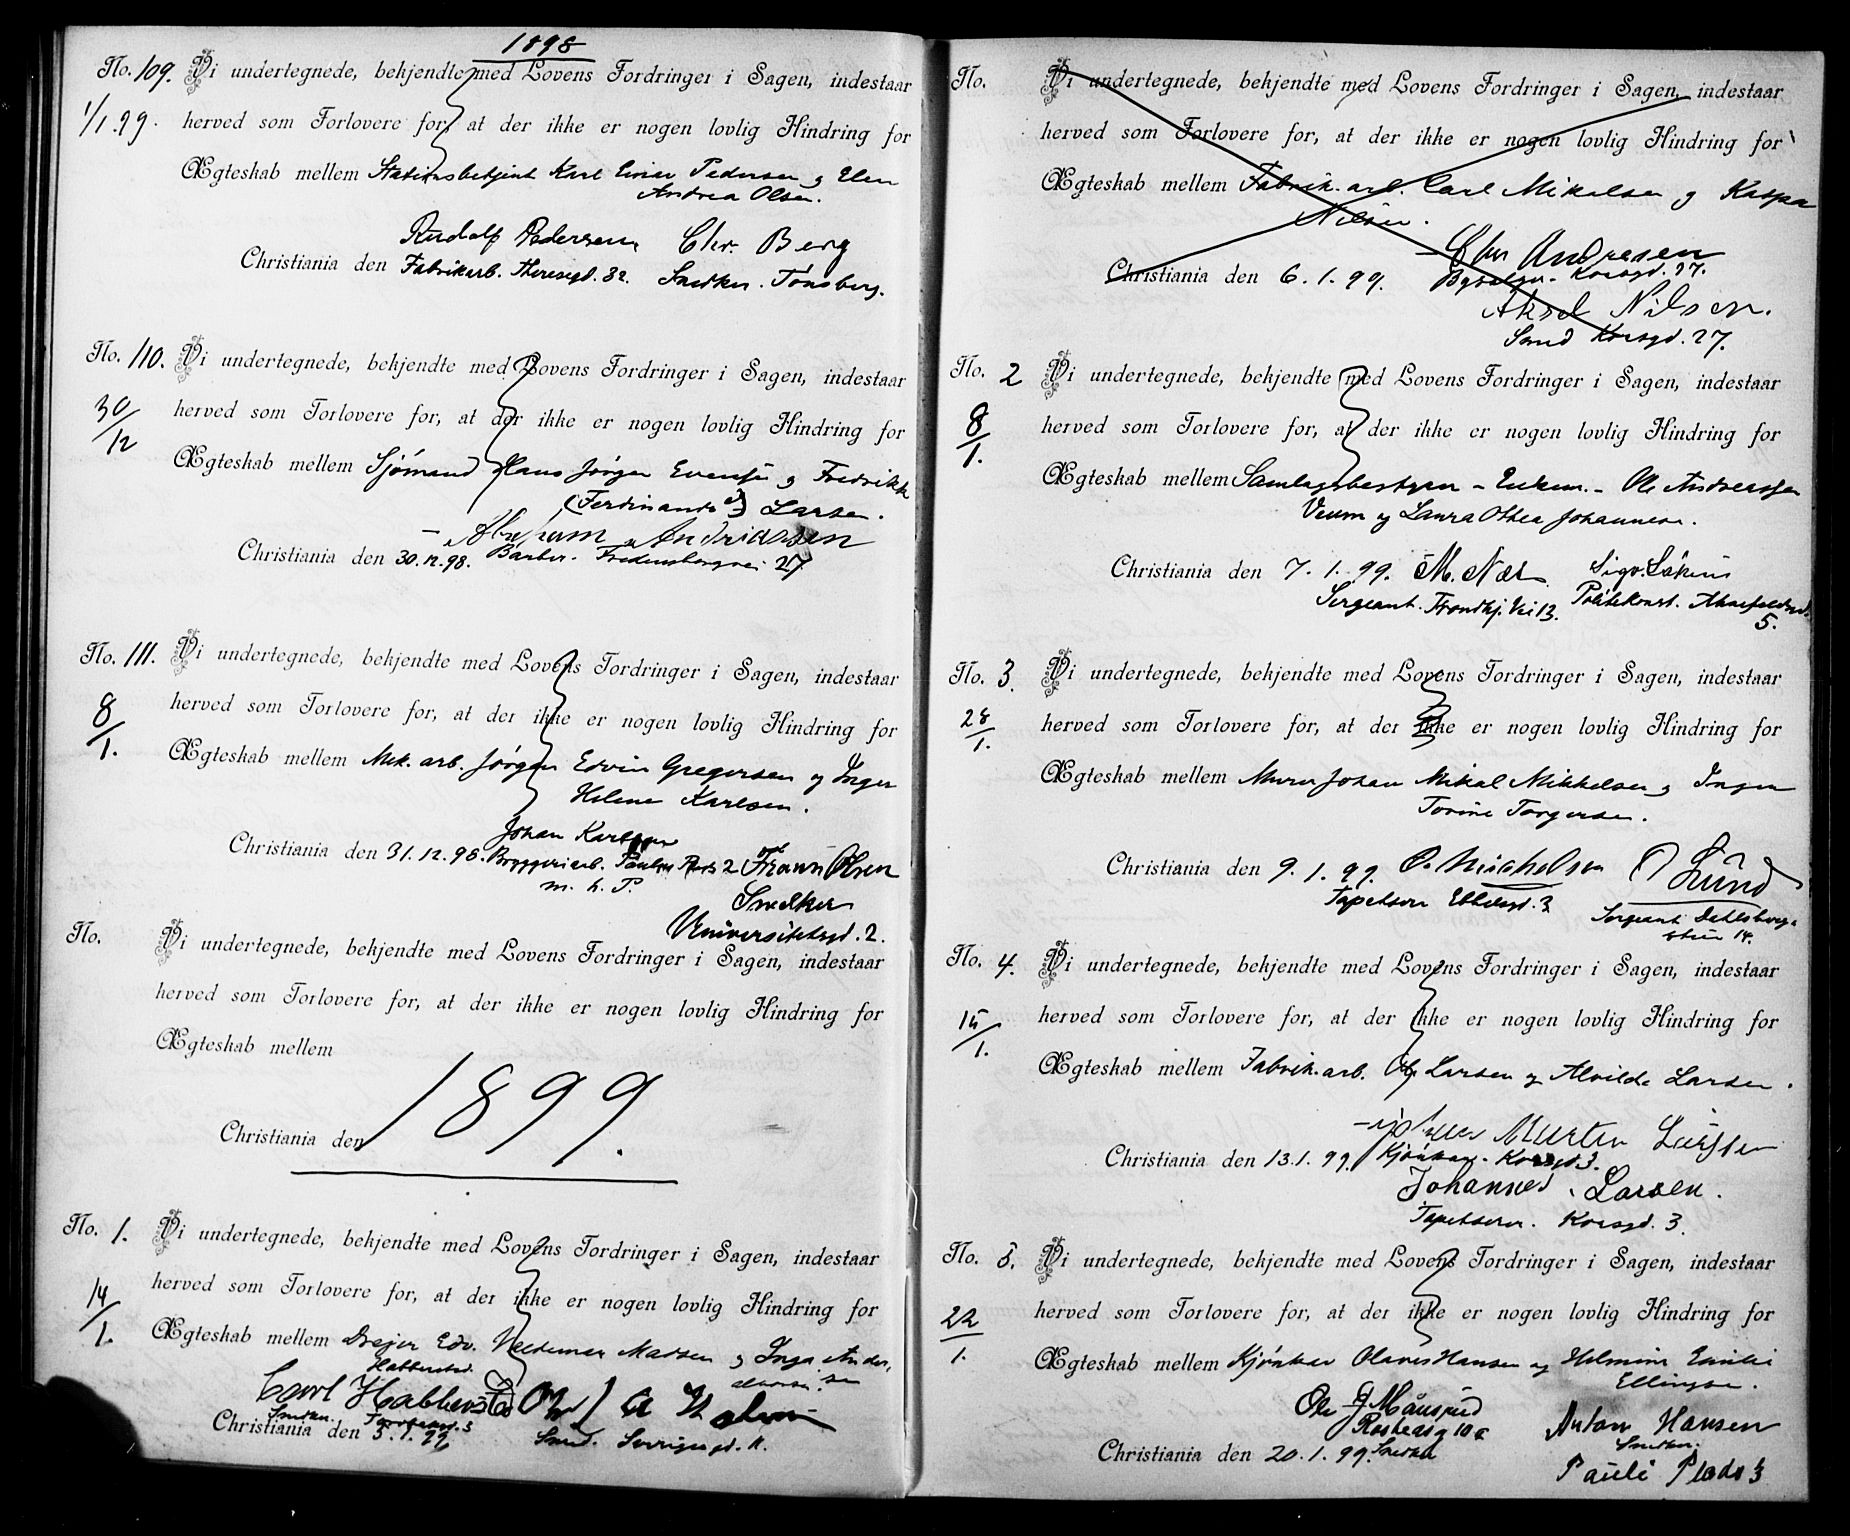 1898
No. 109. Vi undertegnede, bekjendte med Lovens Fordringer i Sagen, indestaar
1/1.99. herved som Forlovere for, at der ikke er nogen lovlig Hindring for
Ægteskab mellem Stationsbetjent Karl Einar Pedersen og Elen
Andrea Olsen.
Rudolf Pedersen Chr. Berg
Christiania den Fabrikarb. Theresegd. 32. Snedker. Tønsberg.
No. 110. Vi undertegnede, bekjendte med Lovens Fordringer i Sagen, indestaar
30/12 herved som Forlovere for, at der ikke er nogen lovlig Hindring for
Ægteskab mellem Sjømand Hans Jørgen Evensen og Fredrikke
(Ferdinanda) Larsen.
Abraham Andriassen
Christiania den 30.12.98. Barber. Fredensborgvei 27
No. 111. Vi undertegnede, bekjendte med Lovens Fordringer i Sagen, indestaar
8/1. herved som Forlovere for, at der ikke er nogen lovlig Hindring for
Ægteskab mellem Mek. arb. Jørgen Edvin Gregersen og Inger
Helene Karlsen.
Johan Karlsen
Christiania den 31.12.98. Bryggeriarb. Paulus Plads 2 Frants Olsen
m. h. P.
Snedker
Universitetsgd. 2.
No. Vi undertegnede, bekjendte med Lovens Fordringer i Sagen, indestaar
herved som Forlovere for, at der ikke er nogen lovlig Hindring for
Ægteskab mellem
1899.
Christiania den
No. 1. Vi undertegnede, bekjendte med Lovens Fordringer i Sagen, indestaar
14/1. herved som Forlovere for, at der ikke er nogen lovlig Hindring for
Ægteskab mellem Drejer Edv. Valdemar Madsen og Inga Ander,
Habberstad sen
Carl Habberstad
Snedker.
Christiania den 5.1.99 Smed. Sverigesgd. 11.
No. Vi undertegnede, bekjendte med Lovens Fordringer i Sagen, indestaar
herved som Forlovere for, at der ikke er nogen lovlig Hindring for
Ægteskab mellem Fabrik. arb. Carl Mikalsen og Kaspa
Nilsen.
Chr Andresen
Christiania den 6.1.99. Korsgd. 27.
Aksel Nilsen.
Smed Korsgd. 27.
No. 2 Vi undertegnede, bekjendte med Lovens Fordringer i Sagen, indestaar
8/1. herved som Forlovere for, at der ikke er nogen lovlig Hindring for
Ægteskab mellem Samlagsbestyrer – Enkem. – Ole Andreassen
Veum og Laura Othea Johannesen.
Christiania den 7.1.99. M. Næs
Sergeant. Trondhj. Vei 13. Politikonst.
5.
No. 3. Vi undertegnede, bekjendte med Lovens Fordringer i Sagen, indestaar
28/1. herved som Forlovere for, at der ikke er nogen lovlig Hindring for
Ægteskab mellem Murer Johan Mikal Mikkelsen og Inger
Torine Torgersen.
Christiania den 9.1.99. O. Michelsen Lund
Tapetserer Ebbelsgd. 3 Sergeant Dehlsberg-
stien 14.
No. 4. Vi undertegnede, bekjendte med Lovens Fordringer i Sagen, indestaar
15/1. herved som Forlovere for, at der ikke er nogen lovlig Hindring for
Ægteskab mellem Fabrik. arb. Ole Larsen og Alvilde Larsen.
Martin Larssen
Christiania den 13.1.99. Kjørekar. Korsgd 3.
Johannes Larsen.
Tapetserer. Korsgd. 3.
No. 5. Vi undertegnede, bekjendte med Lovens Fordringer i Sagen, indestaar
22/1. herved som Forlovere for, at der ikke er nogen lovlig Hindring for
Ægteskab mellem Kjørekar Olaves Hansen og Helmine Emilie
Ellingsen.
Ole J Maurud Anton Hansen
10a Snedker.
Christiania den 20.1.99. Snedker Pauli Plads 3